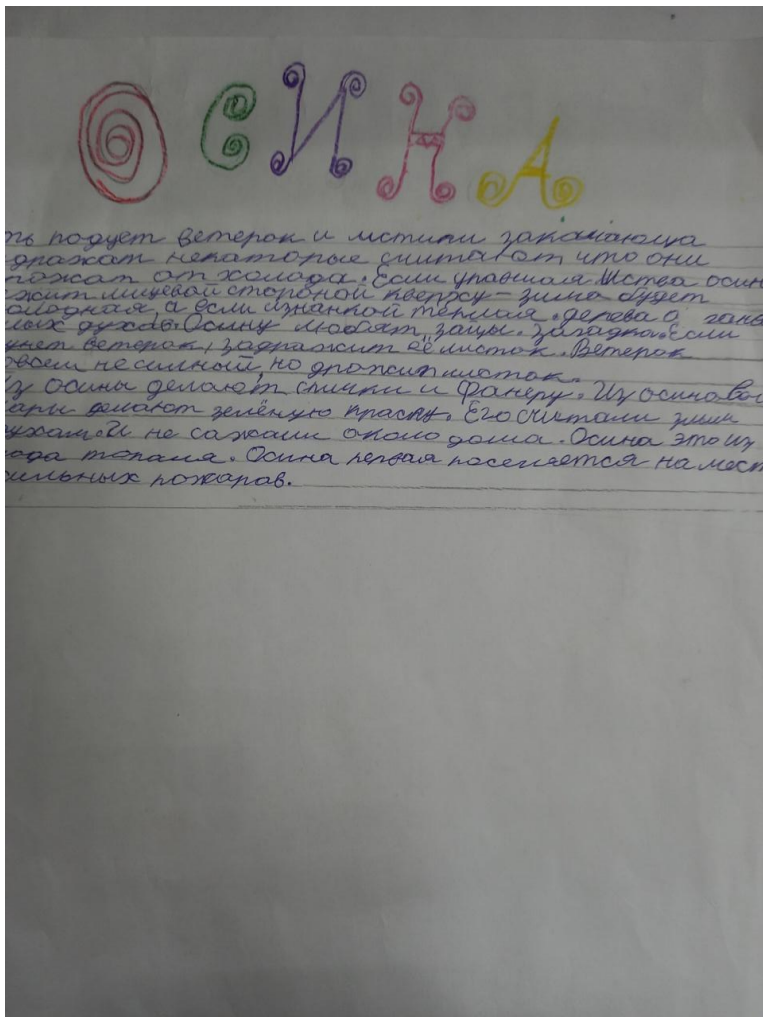 ОСИНА
ть подует ветерок и листики закачаюца
дражат некаторые считают что они
ражат от холода. Если упавшая листва осин
жит лицевой стороной кверху - зима будет
олодная, а если изнанкой теплая. дерева
лых духов. Осину любят зайцы. загадка. Если
унет ветерок, задражит её листок. Ветерок
овсем несильный но дражит листок.
Из осины делают спички и фанеру. Из осиновой
ары делают зелёную краску. Его считали злым
духам. И не сажали около дома. Осина это из
ода тополя. Осина первая поселяется на мест
ильных пожаров.